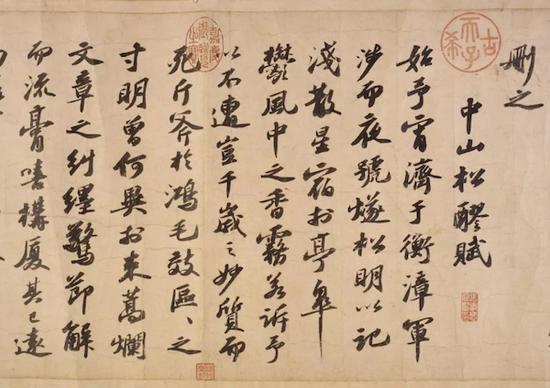 刪之
中山松醪賦
始予宵濟于衡漳軍
涉而夜號燧松明以記
淺散星宿於亭皋
鬱風中之香霧若訴予
以不遭豈千歲之妙質而
死斤斧於鴻毛效區〻之
寸明曾何異於束蒿爛
文章之糾纏驚節解
而流膏嘻構廈其已遠
古希天子
嘉慶御覽之寶